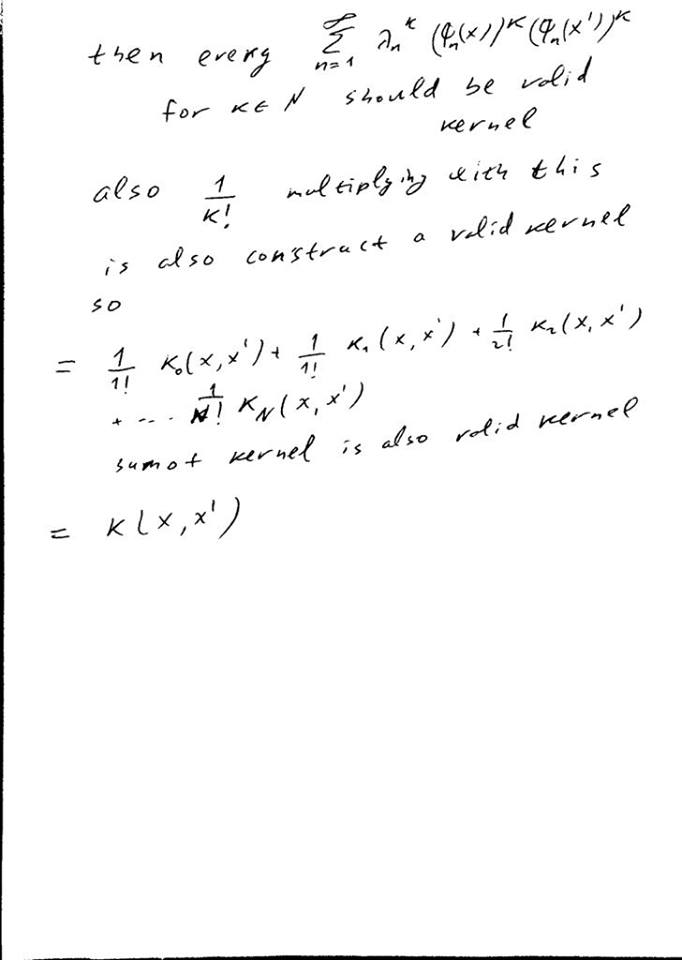 then every ∑_{n=1}^{∞} λ_n^k (φ_n(x))^k (φ_n(x'))^k
for k ∈ N should be valid
kernel
also 1/k! multiplying with this
is also construct a valid kernel
so
= 1/1! K_0(x,x') + 1/1! K_1(x,x') + 1/2! K_2(x,x')
+ ... 1/N! K_N(x,x')
sum of kernel is also valid kernel
= K(x,x')